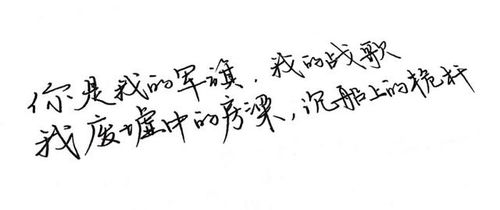 你是我的军旗，我的战歌
我废墟中的房梁，沉船上的桅杆